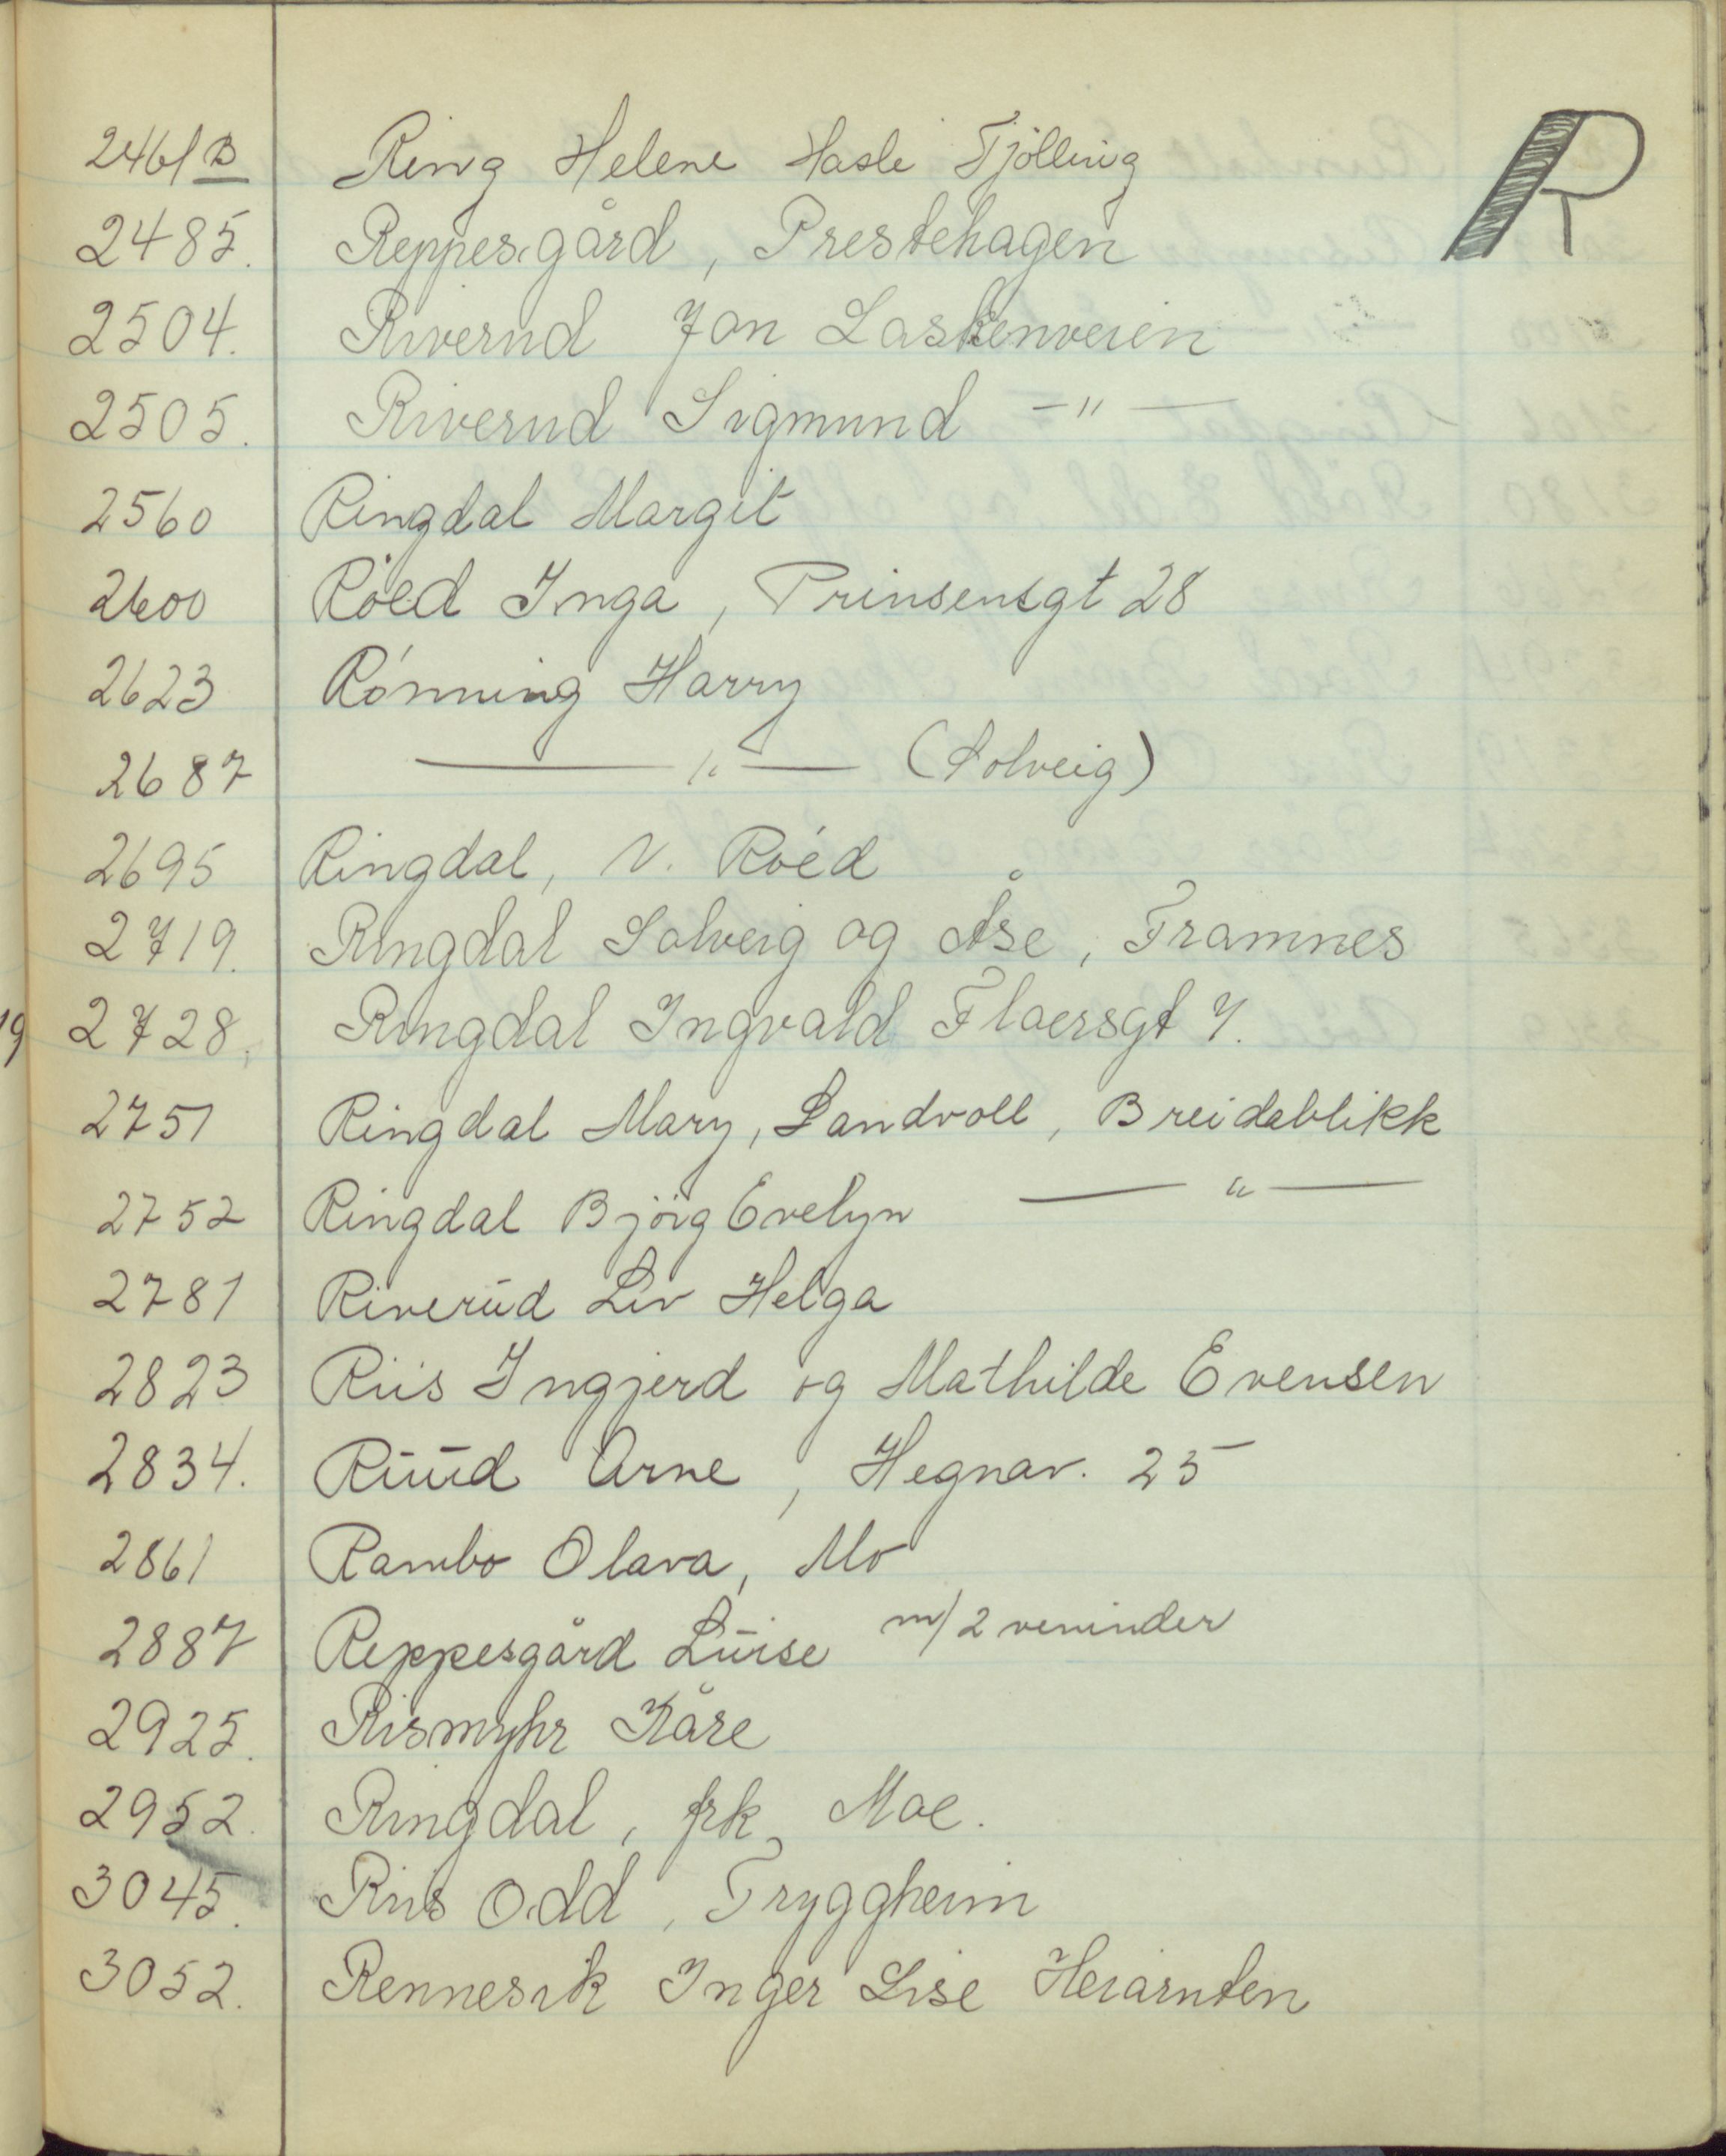 R
2461 B Ring Helene Hasle Tjölling
2485. Reppesgård, Prestehagen
2504. Riverud Jon Laskenveien
2505. Riverud Sigmund —"—
2560 Ringdal Margit
2600 Röed Inga, Prinsensgt 28
2623 Rónning Harry
2687 —"— (Solveig)
2695 Ringdal, V. Róed
2719. Ringdal Solveig og Åse, Framnes
2728. Ringdal Ingvald Floersgt 7.
2751 Ringdal Mary, Landvoll, Breidablikk
2752 Ringdal Björg Evelyn —"—
2781 Riverud Liv Helga
2823 Riis Ingjerd og Mathilde Evensen
2834. Ruud Arne, Hegnav. 25
2861 Rambo Olava, Mo
2887 Reppesgård Luise m/2 veninder
2925. Rismyhr Kåre
2952. Ringdal, frk, Moe.
3045. Riis Odd, Tryggheim
3052. Rennesik Inger Lise